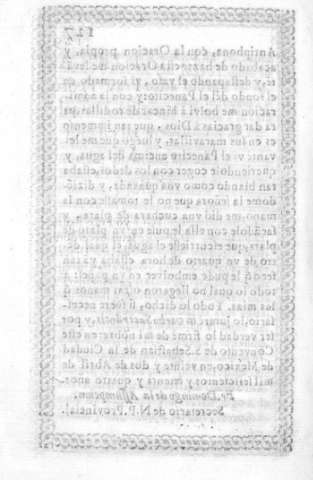 Antiphona, con la Oracion propia, y
acabado de hazer esta Oracion me leva-
té, y destapando el vaso, vi formado en
el fondo del el Panecito; y con la admi-
racion me bolvi á hincar de rodillas pa-
ra dar gracias á Dios, que tan inmenso
es en sus maravillas, y luego que me le-
vanté vi el Panecito encima del agua, y
queriendole coger con los dedos estaba
tan blando como vna quaxada, y dizié-
dome la señora que no le tomasse con la
mano, me dió vna cuchara de plata, y
sacádole con ella le puse en vn plato de
plata, que escurriesse el agua, el qual dé-
tro de vn quarto de hora estaba ya tan
seco, q̃ le pude embolver en vn papel: a
todo lo qual no llegaron otras manos q̃
las mias. Todo lo dicho, si fuere neces-
sario, lo juraré in verbo Sacerdotis, y por
ser verdad lo firmé de mi nombre en este
Convento de S. Sebastian de la Ciudad
de Mexico, en veinte y dos de Abril de
mil seiscientos y treinta y quatro años.
Fr. Domingo de la Assumpcion.
Secretario de N. P. Provincial.